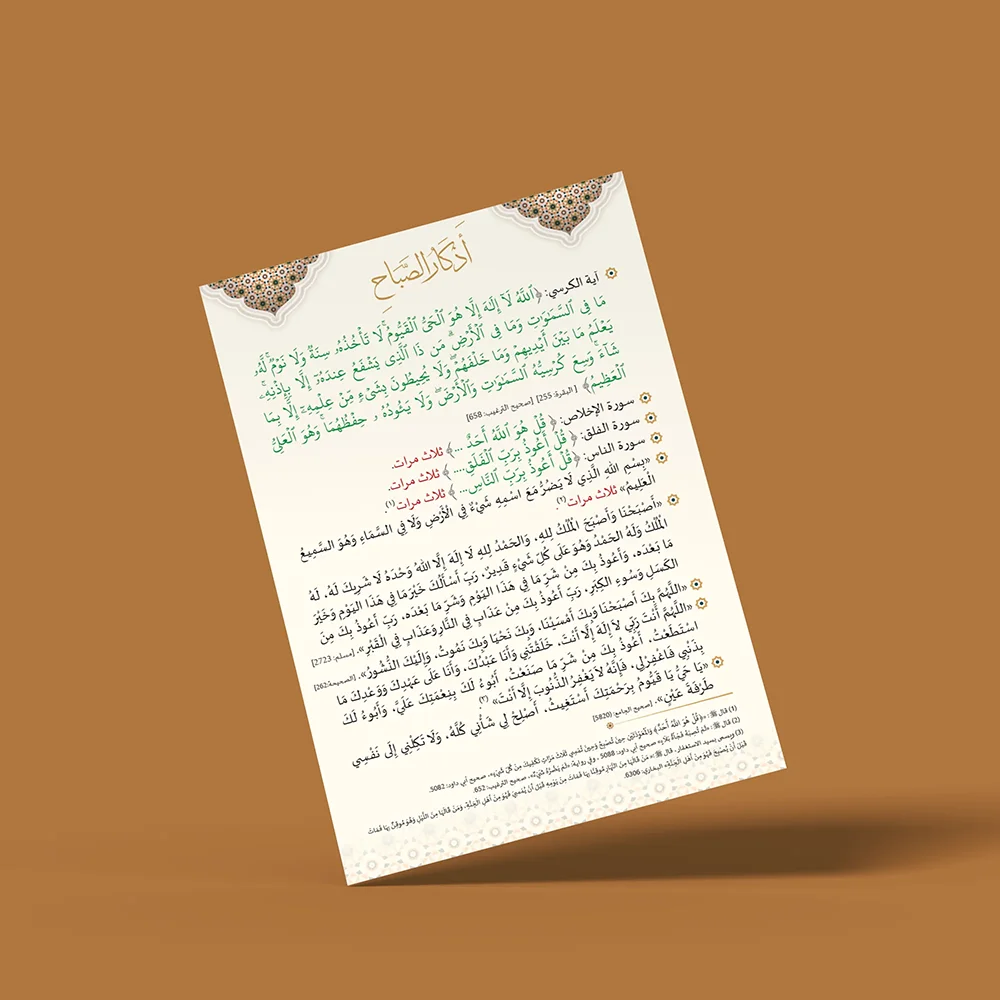 أَذْكَارُ الصَّبَاحِ
آية الكرسي: ﴿ٱللَّهُ لَآ إِلَٰهَ إِلَّا هُوَ ٱلْحَىُّ ٱلْقَيُّومُ ۚ لَا تَأْخُذُهُۥ سِنَةٌ وَلَا نَوْمٌ ۚ لَّهُۥ
مَا فِى ٱلسَّمَٰوَٰتِ وَمَا فِى ٱلْأَرْضِ ۗ مَن ذَا ٱلَّذِى يَشْفَعُ عِندَهُۥٓ إِلَّا بِإِذْنِهِۦ ۚ
يَعْلَمُ مَا بَيْنَ أَيْدِيهِمْ وَمَا خَلْفَهُمْ ۖ وَلَا يُحِيطُونَ بِشَىْءٍ مِّنْ عِلْمِهِۦٓ إِلَّا بِمَا
شَآءَ ۚ وَسِعَ كُرْسِيُّهُ ٱلسَّمَٰوَٰتِ وَٱلْأَرْضَ ۖ وَلَا يَـُٔودُهُۥ حِفْظُهُمَا ۚ وَهُوَ ٱلْعَلِىُّ
ٱلْعَظِيمُ﴾ [البقرة: 255] [صحيح الترغيب: 658]
سورة الإخلاص: ﴿قُلْ هُوَ ٱللَّهُ أَحَدٌ ...﴾ ثلاث مرات.
سورة الفلق: ﴿قُلْ أَعُوذُ بِرَبِّ ٱلْفَلَقِ...﴾ ثلاث مرات.
سورة الناس: ﴿قُلْ أَعُوذُ بِرَبِّ ٱلنَّاسِ...﴾ ثلاث مرات(١).
«بِسْمِ اللهِ الَّذِي لَا يَضُرُّ مَعَ اسْمِهِ شَيْءٌ فِي الْأَرْضِ وَلَا فِي السَّمَاءِ وَهُوَ السَّمِيعُ
الْعَلِيمُ» ثلاث مرات(٢).
«أَصْبَحْنَا وَأَصْبَحَ الْمُلْكُ لِلهِ، وَالحَمْدُ لِلهِ لَا إِلَهَ إِلَّا اللهُ وَحْدَهُ لَا شَرِيكَ لَهُ، لَهُ
الْمُلْكُ وَلَهُ الحَمْدُ وَهُوَ عَلَى كُلِّ شَيْءٍ قَدِيرٌ، رَبِّ أَسْأَلُكَ خَيْرَ مَا فِي هَذَا الْيَوْمِ وَخَيْرَ
مَا بَعْدَه، وَأَعُوذُ بِكَ مِنْ شَرِّ مَا فِي هَذَا اليَوْمِ وَشَرِّ مَا بَعْدَه، رَبِّ أَعُوذُ بِكَ مِنَ
الكَسَلِ وَسُوءِ الكِبَرِ، رَبِّ أَعُوذُ بِكَ مِنْ عَذَابٍ فِي النَّارِ وَعَذَابٍ فِي الْقَبْرِ». [مسلم: 2723]
«اللَّهُمَّ بِكَ أَصْبَحْنَا وَبِكَ أَمْسَيْنَا، وَبِكَ نَحْيَا وَبِكَ نَمُوتُ، وَإِلَيْكَ النُّشُورُ». [الصحيحة:262]
«اللَّهُمَّ أَنْتَ رَبِّي لَا إِلَهَ إِلَّا أَنْتَ، خَلَقْتَنِي وَأَنَا عَبْدُكَ، وَأَنَا عَلَى عَهْدِكَ وَوَعْدِكَ مَا
اسْتَطَعْتُ، أَعُوذُ بِكَ مِنْ شَرِّ مَا صَنَعْتُ، أَبُوءُ لَكَ بِنِعْمَتِكَ عَلَيَّ، وَأَبُوءُ لَكَ
بِذَنْبِي فَاغْفِرْ لِي، فَإِنَّهُ لَا يَغْفِرُ الذُّنُوبَ إِلَّا أَنْتَ»(٣)
«يَا حَيُّ يَا قَيُّومُ بِرَحْمَتِكَ أَسْتَغِيثُ، أَصْلِحْ لِي شَأْنِي كُلَّهُ، وَلَا تَكِلْنِي إِلَى نَفْسِي
طَرْفَةَ عَيْنٍ». [صحيح الجامع: 5820]
(1) قال ﷺ: «﴿قُلْ هُوَ اللهُ أَحَدٌ﴾ وَالْمُعَوِّذَتَيْنِ حِينَ تُصْبِحُ وَحِينَ تُمْسِي ثَلَاثَ مَرَّاتٍ تَكْفِيكَ مِنْ كُلِّ شَيْءٍ». صحيح أبي داود: 5082.
(2) قال ﷺ: «لَمْ تُصِبْهُ فَجْأَةُ بَلَاءٍ» صحيح أبي داود: 5088 . وفي رواية: «لَمْ يَضُرَّهُ شَيْءٌ». صحيح الترغيب: 652.
(3) ويسمى بسيد الاستغفار، قال ﷺ: «مَنْ قَالَهَا مِنَ النَّهَارِ مُوقِنًا بِهَا فَمَاتَ مِنْ يَوْمِهِ قَبْلَ أَنْ يُمْسِيَ فَهُوَ مِنْ أَهْلِ الْجَنَّةِ، وَمَنْ قَالَهَا مِنَ اللَّيْلِ وَهُوَ مُوقِنٌ بِهَا فَمَاتَ
قَبْلَ أَنْ يُصْبِحَ فَهُوَ مِنْ أَهْلِ الْجَنَّةِ». البخاري: 6306.